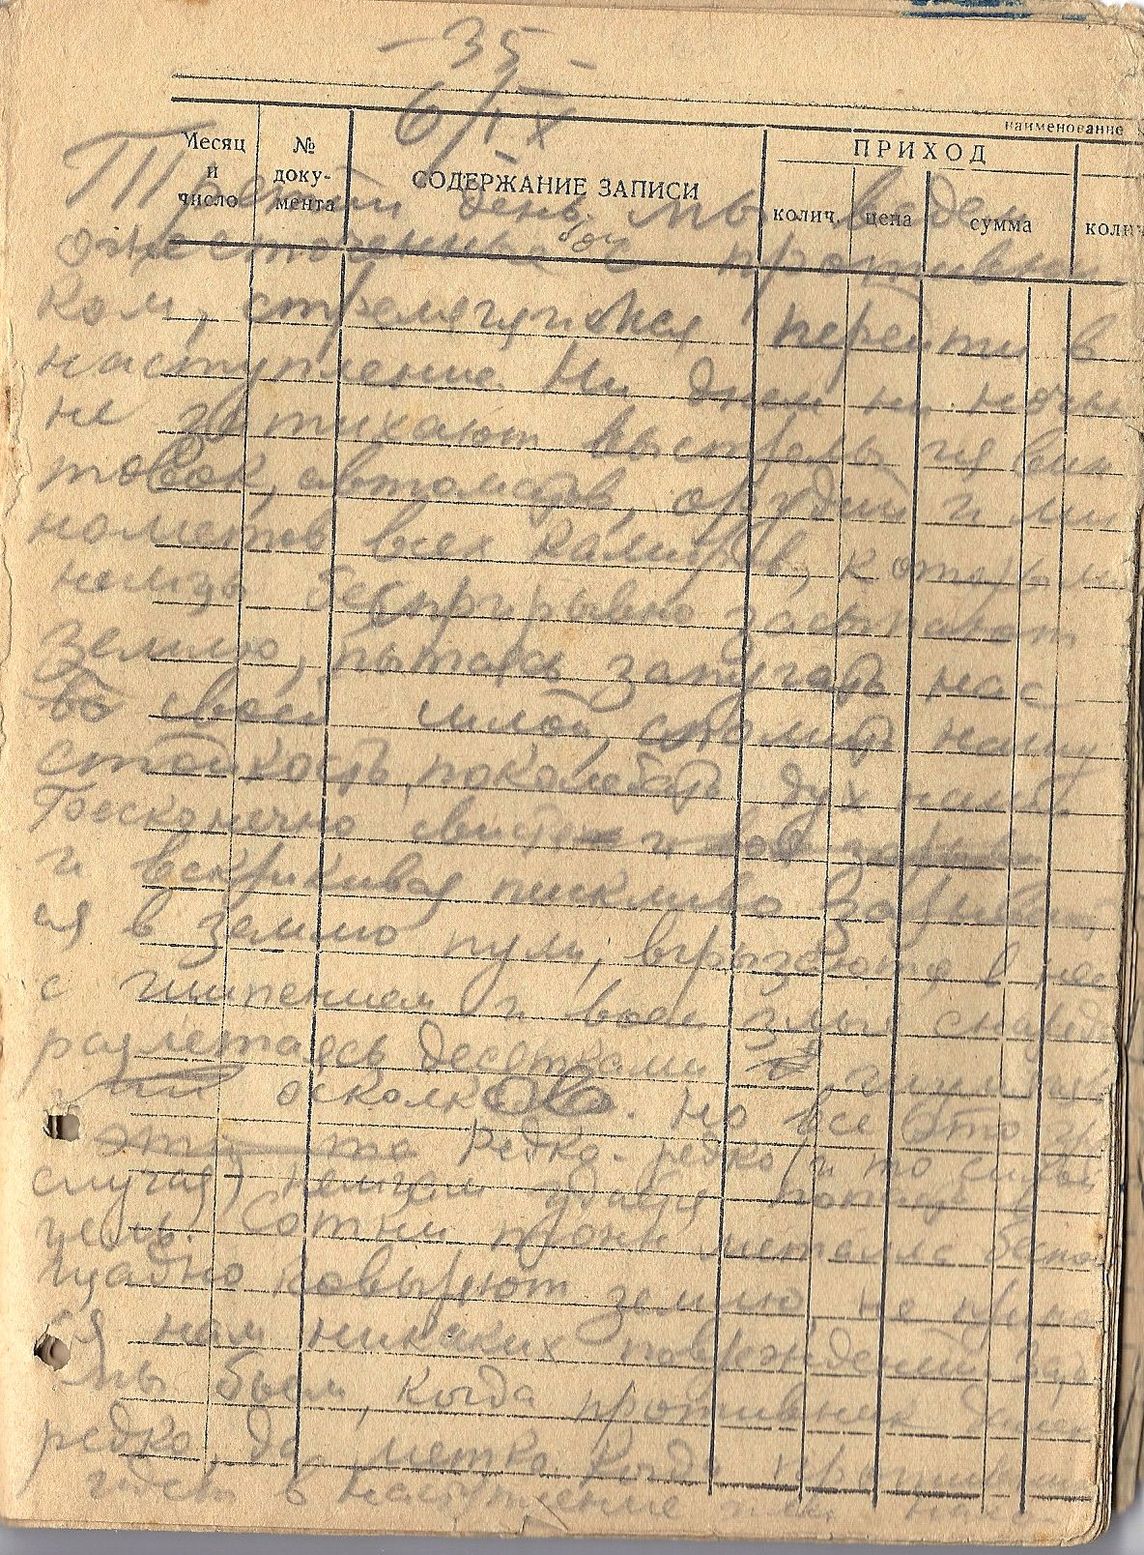 - 35 -
6/IX
наименование
Месяц и число
№ доку-мента
СОДЕРЖАНИЕ ЗАПИСИ
ПРИХОД
колич.
цена
сумма
колич
Третий день мы ведем
ожесточенные бои с противни
ком, стремящимся перейти в
наступление. Ни днем ни ночью
не затихают выстрелы из вин
товок, автоматов, орудий и ми
нометов всех калибров, которыми
немцы беспрерывно засыпают
землю, пытаясь запугать нас
во своей силой, сломить нашу
стойкость, поколебать дух наш.
Бесконечно свистя и
и вскрикивая пискливо зарываю
ся в землю пули, вгрызаются в нее
с шипением и воем злые снаряды
разлетаясь десятками
осколков. Но все это
это то редко-редко и то
случая, немцам удается попасть в
цель. Сотни тонн металла беспо
щадно ковыряют землю, не принося
нам никаких повреждений. За
мы бьем, когда противник
редко, да метко. Когда противник
идет в наступление